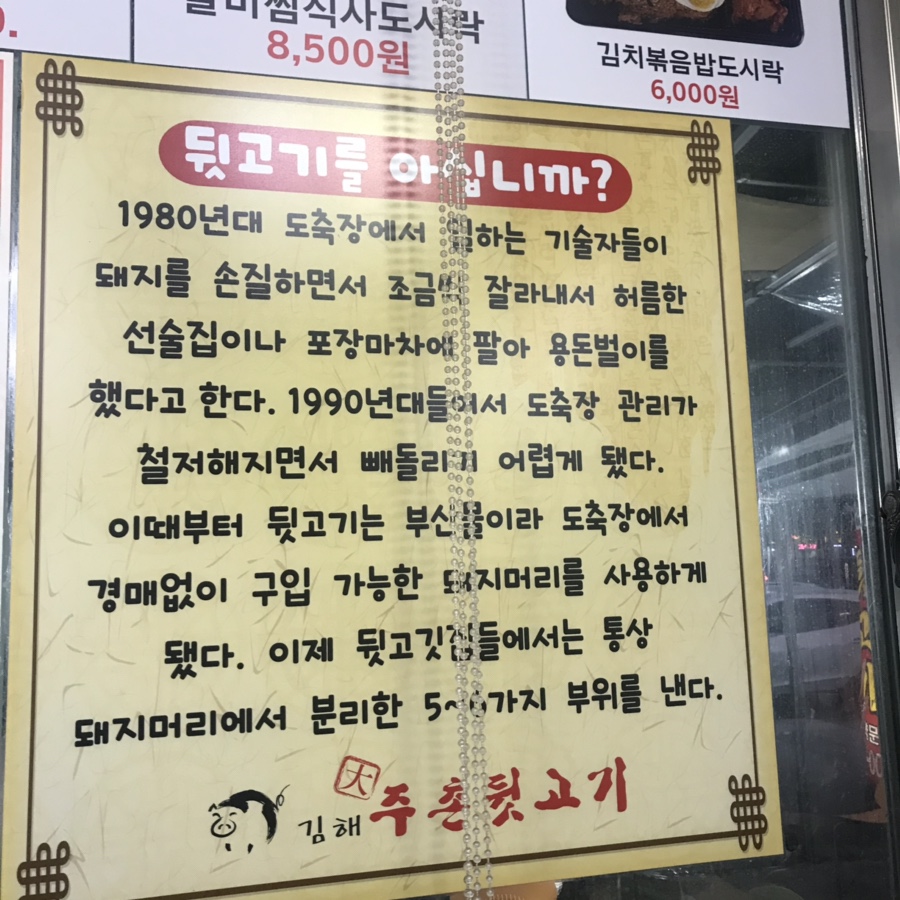 갈비찜식사도시락
8,500원
김치볶음밥도시락
6,000원
뒷고기를 아십니까?
1980년대 도축장에서 일하는 기술자들이
돼지를 손질하면서 조금씩 잘라내서 허름한
선술집이나 포장마차에 팔아 용돈벌이를
했다고 한다. 1990년대들어서 도축장 관리가
철저해지면서 빼돌리기 어렵게 됐다.
이때부터 뒷고기는 부산물이라 도축장에서
경매없이 구입 가능한 돼지머리를 사용하게
됐다. 이제 뒷고깃집들에서는 통상
돼지머리에서 분리한 5~6가지 부위를 낸다.
大
김해 주촌뒷고기